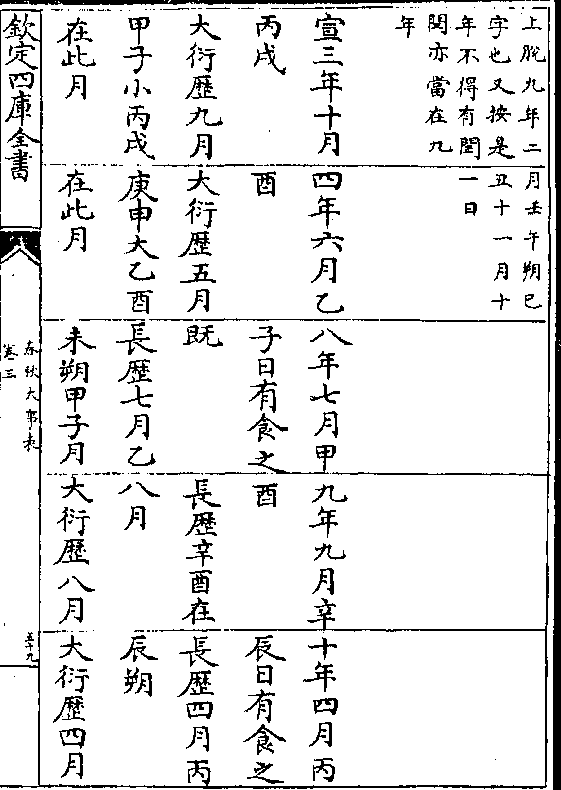 上脫九年二
字也又按是
年不得有閏
閏亦當在九
年
宣三年十月
丙戌
大衍歷九月
甲子小丙戌
在此月
月壬午朔已
丑十一月十
一日
四年六月乙
酉
大衍歷五月
庚申大乙酉
在此月
八年七月甲
子日有食之
既
長歷七月乙
未朔甲子月
九年九月辛
酉
長歷辛酉在
八月
大衍歷八月
十年四月丙
辰日有食之
長歷四月丙
辰朔
大衍歷四月
欽定四庫全書
春秋大事表
卷三
五十九